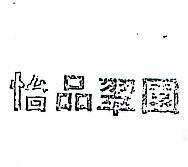 怡品翠園